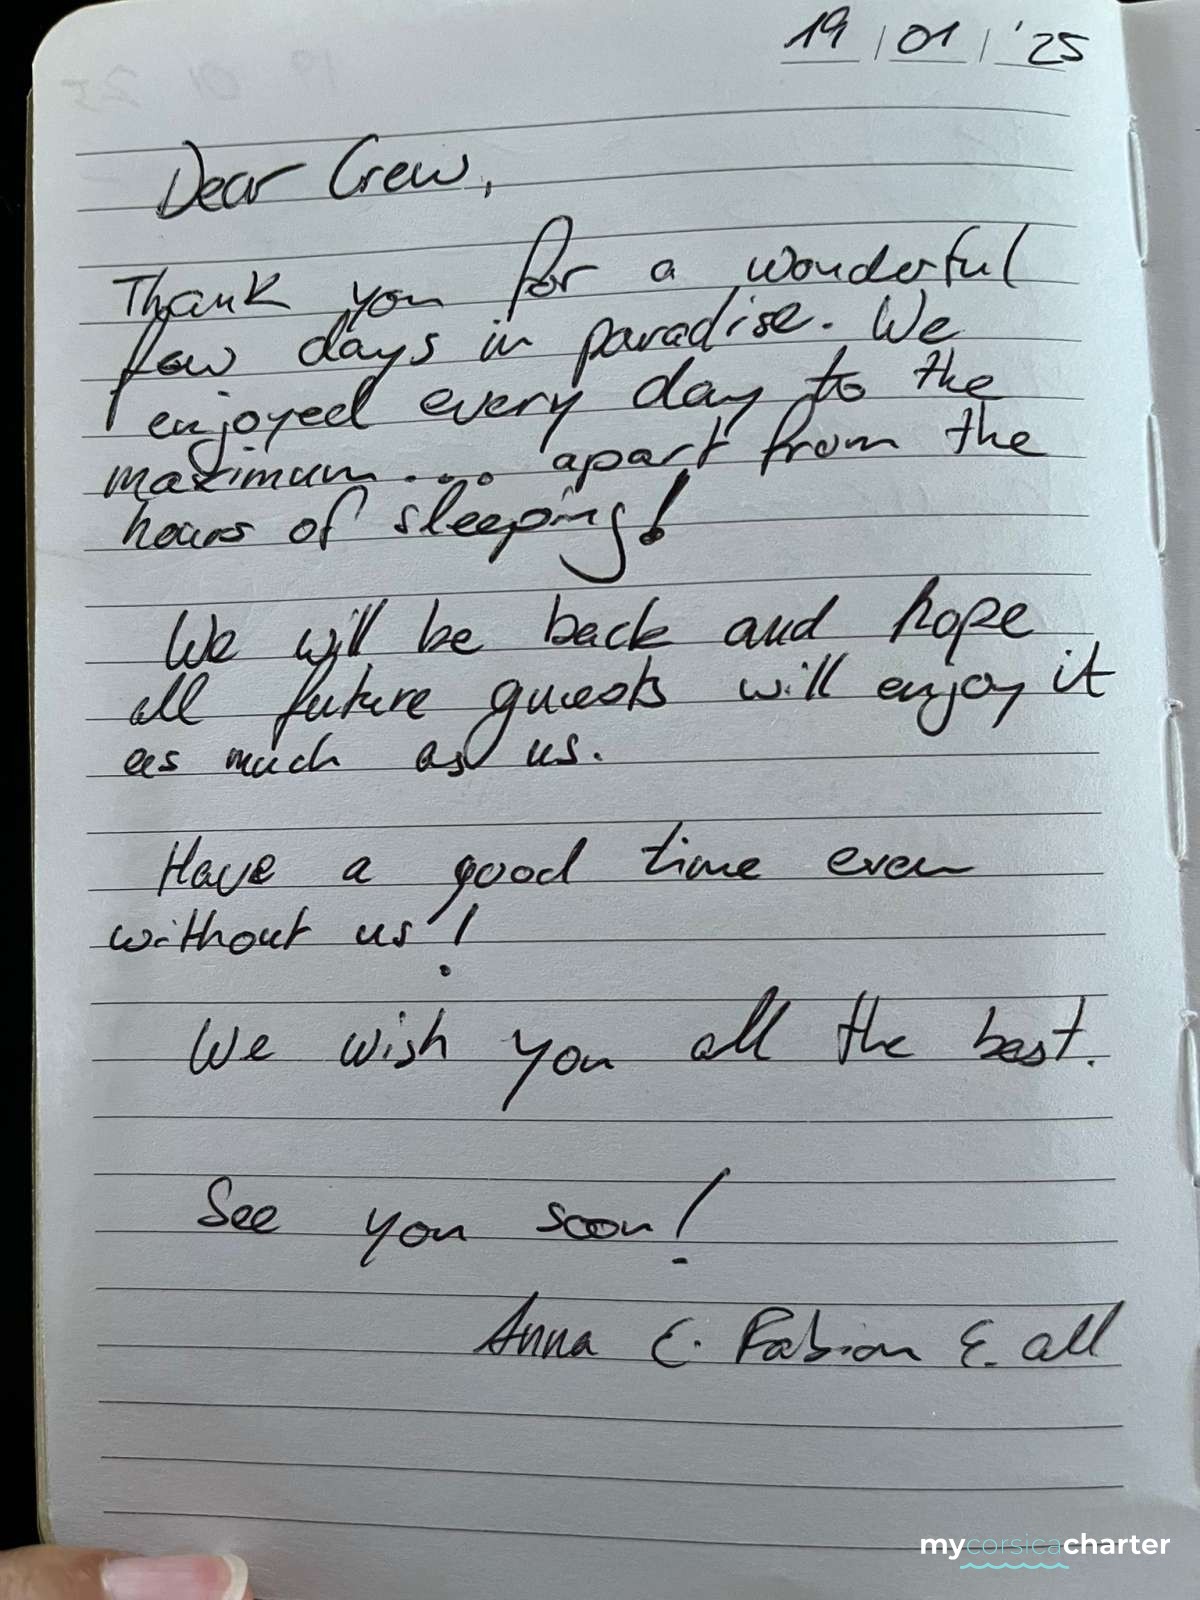 19 / 01 / '25
Dear Crew,
Thank you for a wonderful
few days in paradise. We
enjoyed every day to the
maximum... apart from the
hours of sleeping!
We will be back and hope
all future guests will enjoy it
as much as us.
Have a good time even
without us!
We wish you all the best.
See you soon!
Anna &. Fabian &. all
mycorsicacharter